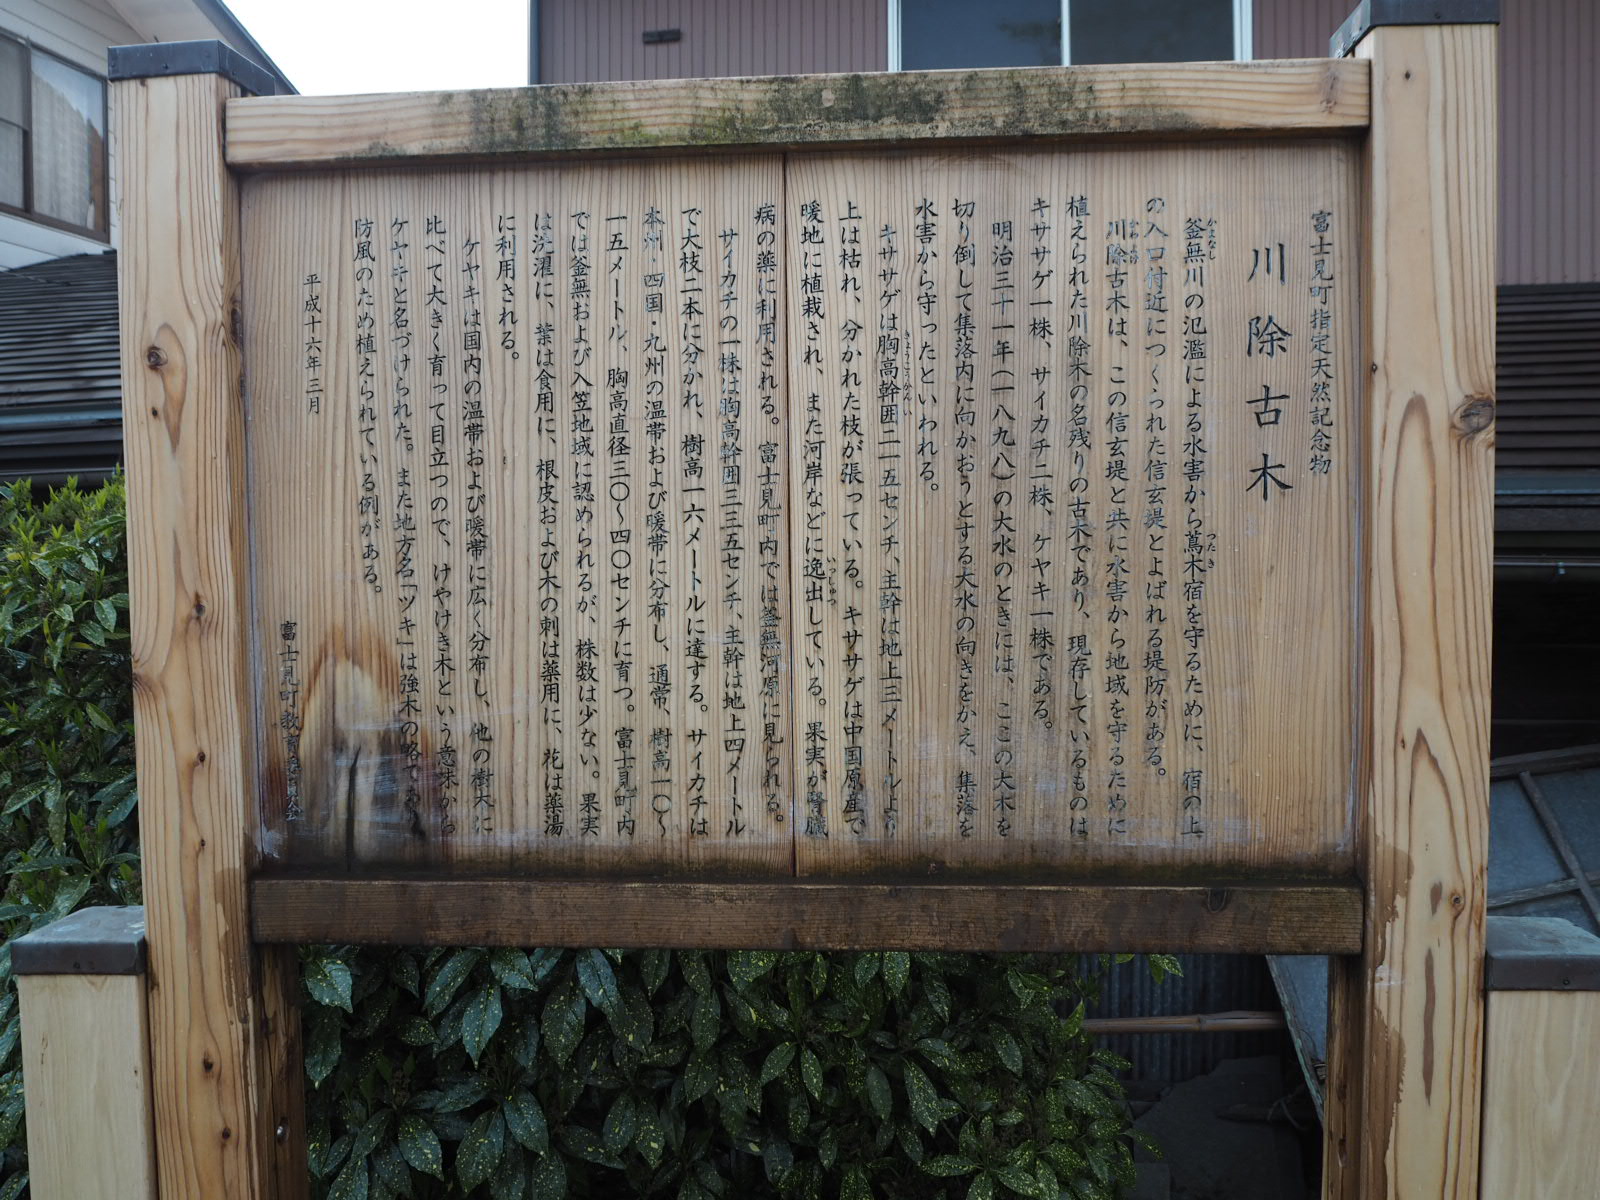 富士見町指定天然記念物
川除古木
釜無川の氾濫による水害から蔦木宿を守るために、宿の上
の入口付近につくられた信玄堤とよばれる堤防がある。
川除古木は、この信玄堤と共に水害から地域を守るために
植えられた川除木の名残りの古木であり、現存しているものは
キササゲ一株、サイカチ二株、ケヤキ一株である。
明治三十一年(一八九八)の大水のときには、ここの大木を
切り倒して集落内に向かおうとする大水の向きをかえ、集落を
水害から守ったといわれる。
キササゲは胸高幹囲二一五センチ、主幹は地上三メートルより
上は枯れ、分かれた枝が張っている。キササゲは中国原産で
暖地に植栽され、また河岸などに逸出している。果実が腎臓
病の薬に利用される。富士見町内では釜無河原に見られる。
サイカチの一株は胸高幹囲三三五センチ、主幹は地上四メートル
で大枝二本に分かれ、樹高一六メートルに達する。サイカチは
本州・四国・九州の温帯および暖帯に分布し、通常、樹高一〇〜
一五メートル、胸高直径三〇〜四〇センチに育つ。富士見町内
では釜無および入笠地域に認められるが、株数は少ない。果実
は洗濯に、葉は食用に、根皮および木の刺は薬用に、花は薬湯
に利用される。
ケヤキは国内の温帯および暖帯に広く分布し、他の樹木に
比べて大きく育って目立つので、けやけき木という意味から
ケヤキと名づけられた。また地方名「ツキ」は強木の略であり
防風のため植えられている例がある。
平成十六年三月
富士見町教育委員会